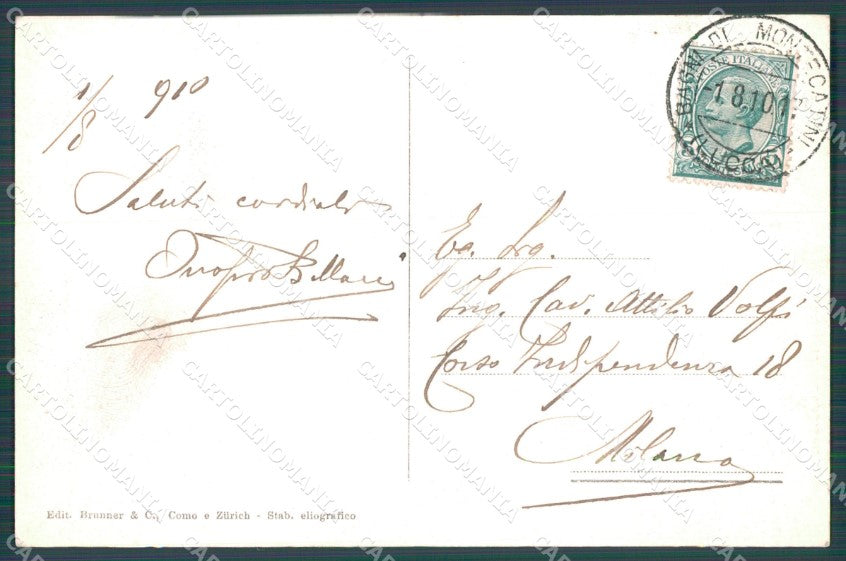 1/8 910
Saluti cordiali
Eg. Sig.
Ing. Cav. Attilio Volfi
Corso Indipendenza 18
Milano
BAGNI DI MONTECATINI
-1.8.10.1
(LUCCA)
POSTE ITALIANE
Edit. Brunner & C., Como e Zürich - Stab. eliografico
CARTOLINOMANIA